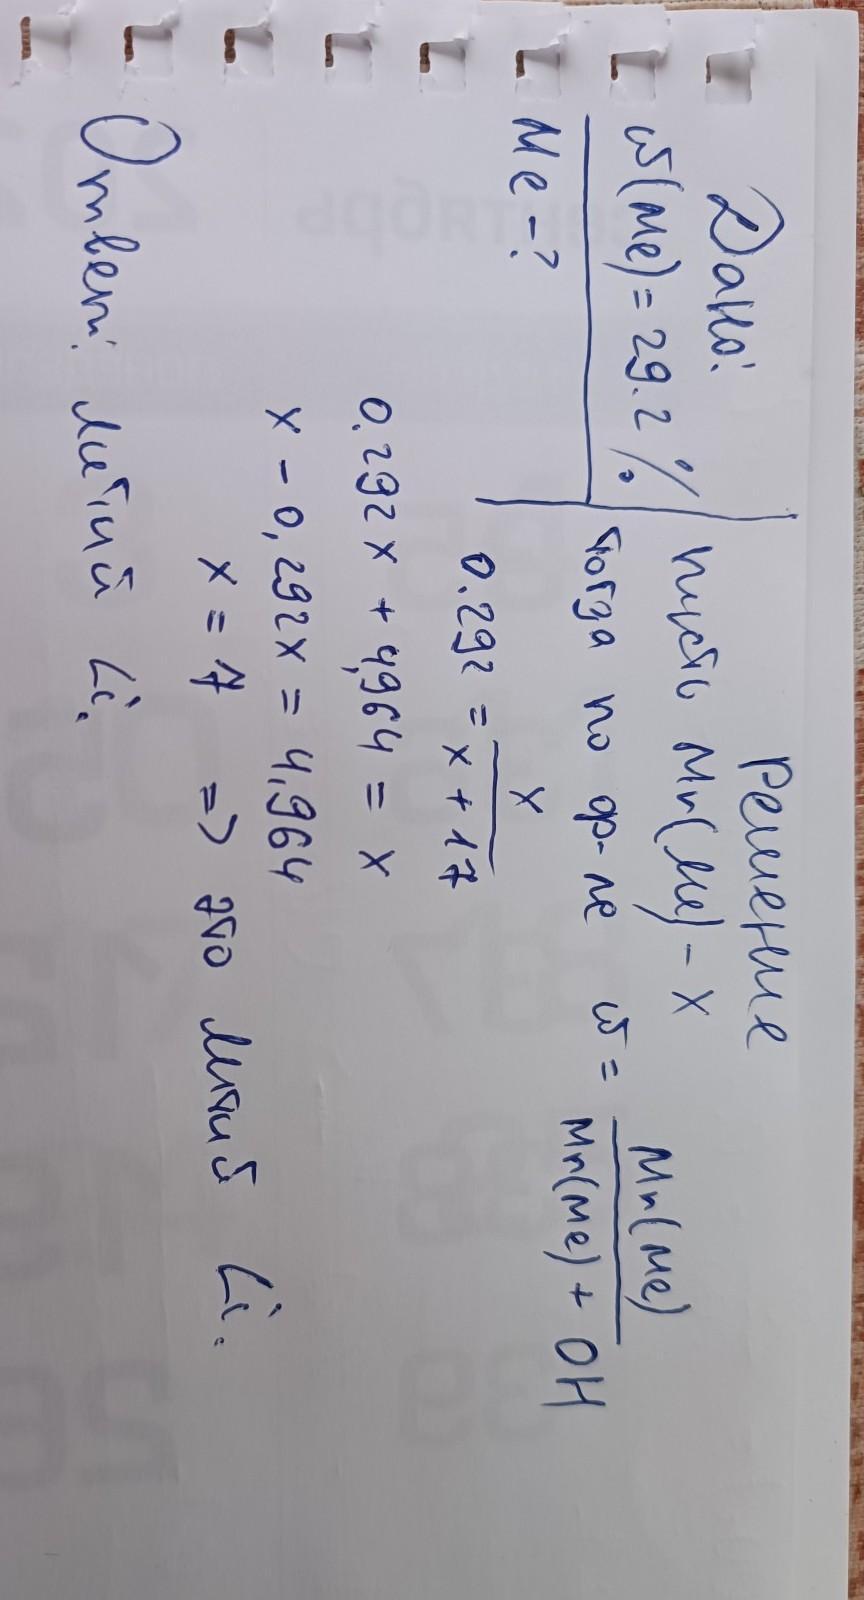 Дано:
ω(Me) = 29.2 %
Me - ?
Решение
пусть Mr(Me) - x
тогда по ф-ле ω = Mr(Me)
Mr(Me) + OH
0.292 = x
x + 17
0.292x + 4,964 = x
x - 0,292x = 4,964
x = 7 => это литий Li.
Ответ: литий Li.